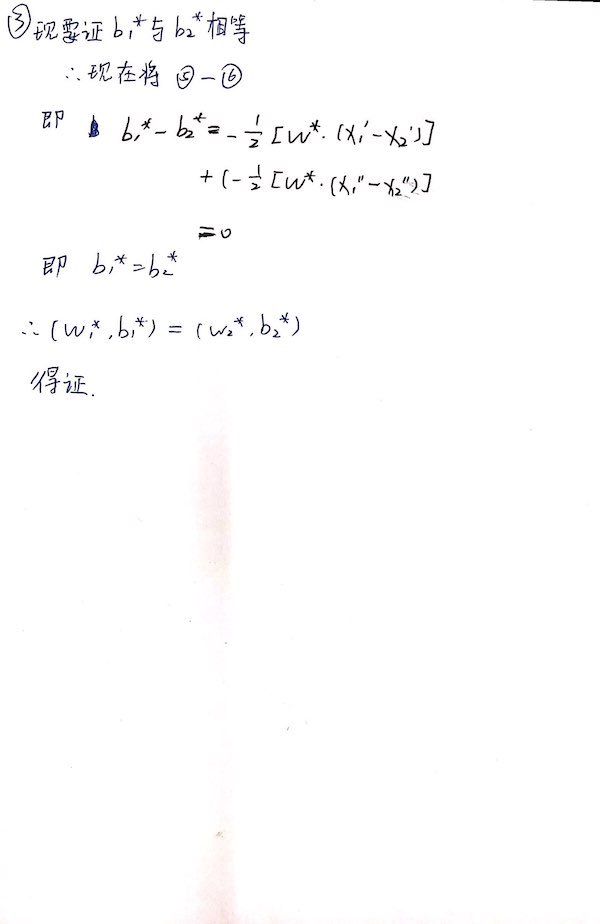 ③现要证 b₁*与b₂*相等
∴现在将 ⑤-⑥
即 b₁*-b₂*=-½[w*·(x₁'-x₂')]
+(-½[w*·(x₁''-x₂'')]
=0
即 b₁*=b₂*
∴(w₁*,b₁*)=(w₂*,b₂*)
得证.